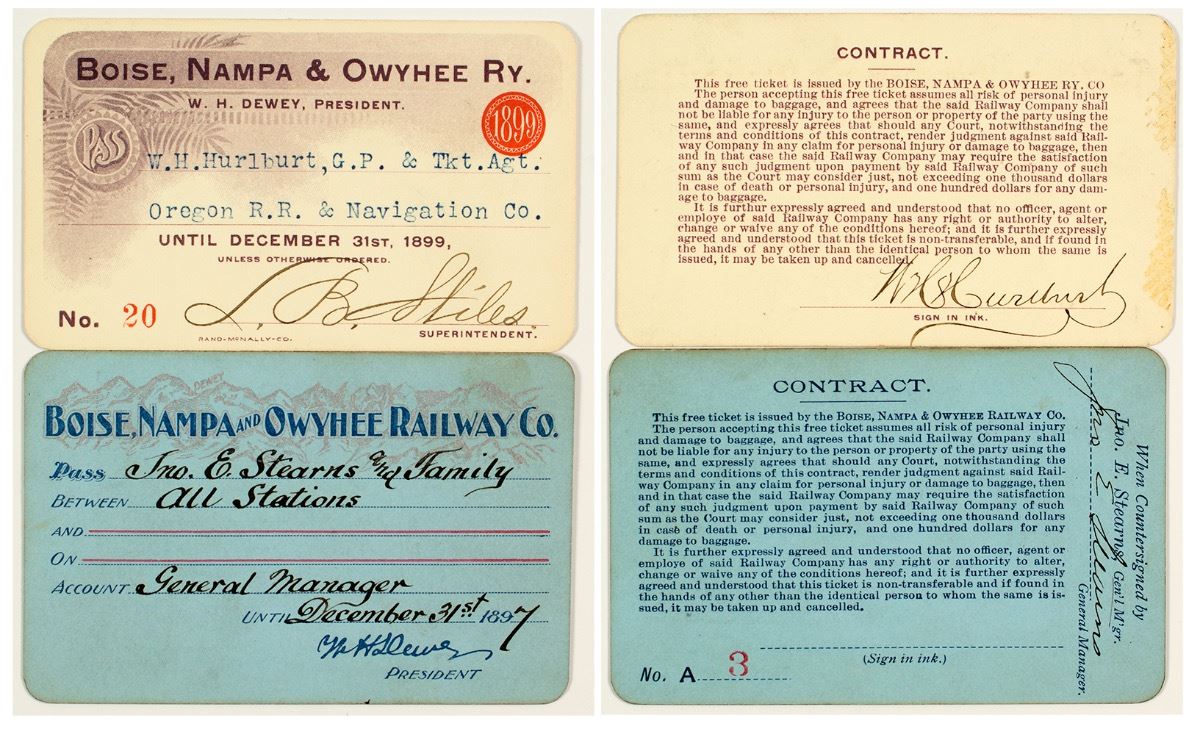 BOISE, NAMPA & OWYHEE RY.
W. H. DEWEY, PRESIDENT.
1899
PASS
W.H.Hurlburt,G.P. & Tkt.Agt.
Oregon R.R. & Navigation Co.
UNTIL DECEMBER 31ST, 1899,
UNLESS OTHERWISE ORDERED.
No. 20
L. B. Stiles.
RAND-MCNALLY-CO.
SUPERINTENDENT.
CONTRACT.
This free ticket is issued by the BOISE, NAMPA & OWYHEE RY. CO
The person accepting this free ticket assumes all risk of personal injury
and damage to baggage, and agrees that the said Railway Company shall
not be liable for any injury to the person or property of the party using the
same, and expressly agrees that should any Court, notwithstanding the
terms and conditions of this contract, render judgment against said Rail-
way Company in any claim for personal injury or damage to baggage, then
and in that case the said Railway Company may require the satisfaction
of any such judgment upon payment by said Railway Company of such
sum as the Court may consider just, not exceeding one thousand dollars
in case of death or personal injury, and one hundred dollars for any dam-
age to baggage.
It is furthur expressly agreed and understood that no officer, agent or
employe of said Railway Company has any right or authority to alter,
change or waive any of the conditions hereof; and it is further expressly
agreed and understood that this ticket is non-transferable, and if found in
the hands of any other than the identical person to whom the same is
issued, it may be taken up and cancelled.
W H Hurlburt
SIGN IN INK.
DEWEY
BOISE, NAMPA AND OWYHEE RAILWAY CO.
Pass Jno. E. Stearns and Family
BETWEEN All Stations
AND
ON
ACCOUNT General Manager
UNTIL December 31st 1897
W H Dewey
PRESIDENT
CONTRACT.
This free ticket is issued by the BOISE, NAMPA & OWYHEE RAILWAY CO.
The person accepting this free ticket assumes all risk of personal injury
and damage to baggage, and agrees that the said Railway Company shall
not be liable for any injury to the person or property of the party using the
same, and expressly agrees that should any Court, notwithstanding the
terms and conditions of this contract, render judgment against said Rail-
way Company in any claim for personal injury or damage to baggage, then
and in that case the said Railway Company may require the satisfaction
of any such judgment upon payment by said Railway Company of such
sum as the Court may consider just, not exceeding one thousand dollars
in case of death or personal injury, and one hundred dollars for any
damage to baggage.
It is further expressly agreed and understood that no officer, agent or
employe of said Railway Company has any right or authority to alter,
change or waive any of the conditions hereof; and it is further expressly
agreed and understood that this ticket is non-transferable and if found in
the hands of any other than the identical person to whom the same is is-
sued, it may be taken up and cancelled.
(Sign in ink.)
No. A 3
When Countersigned by
JNO. E. STEARNS Gen'l M'gr.
Jno E Stearns
General Manager.